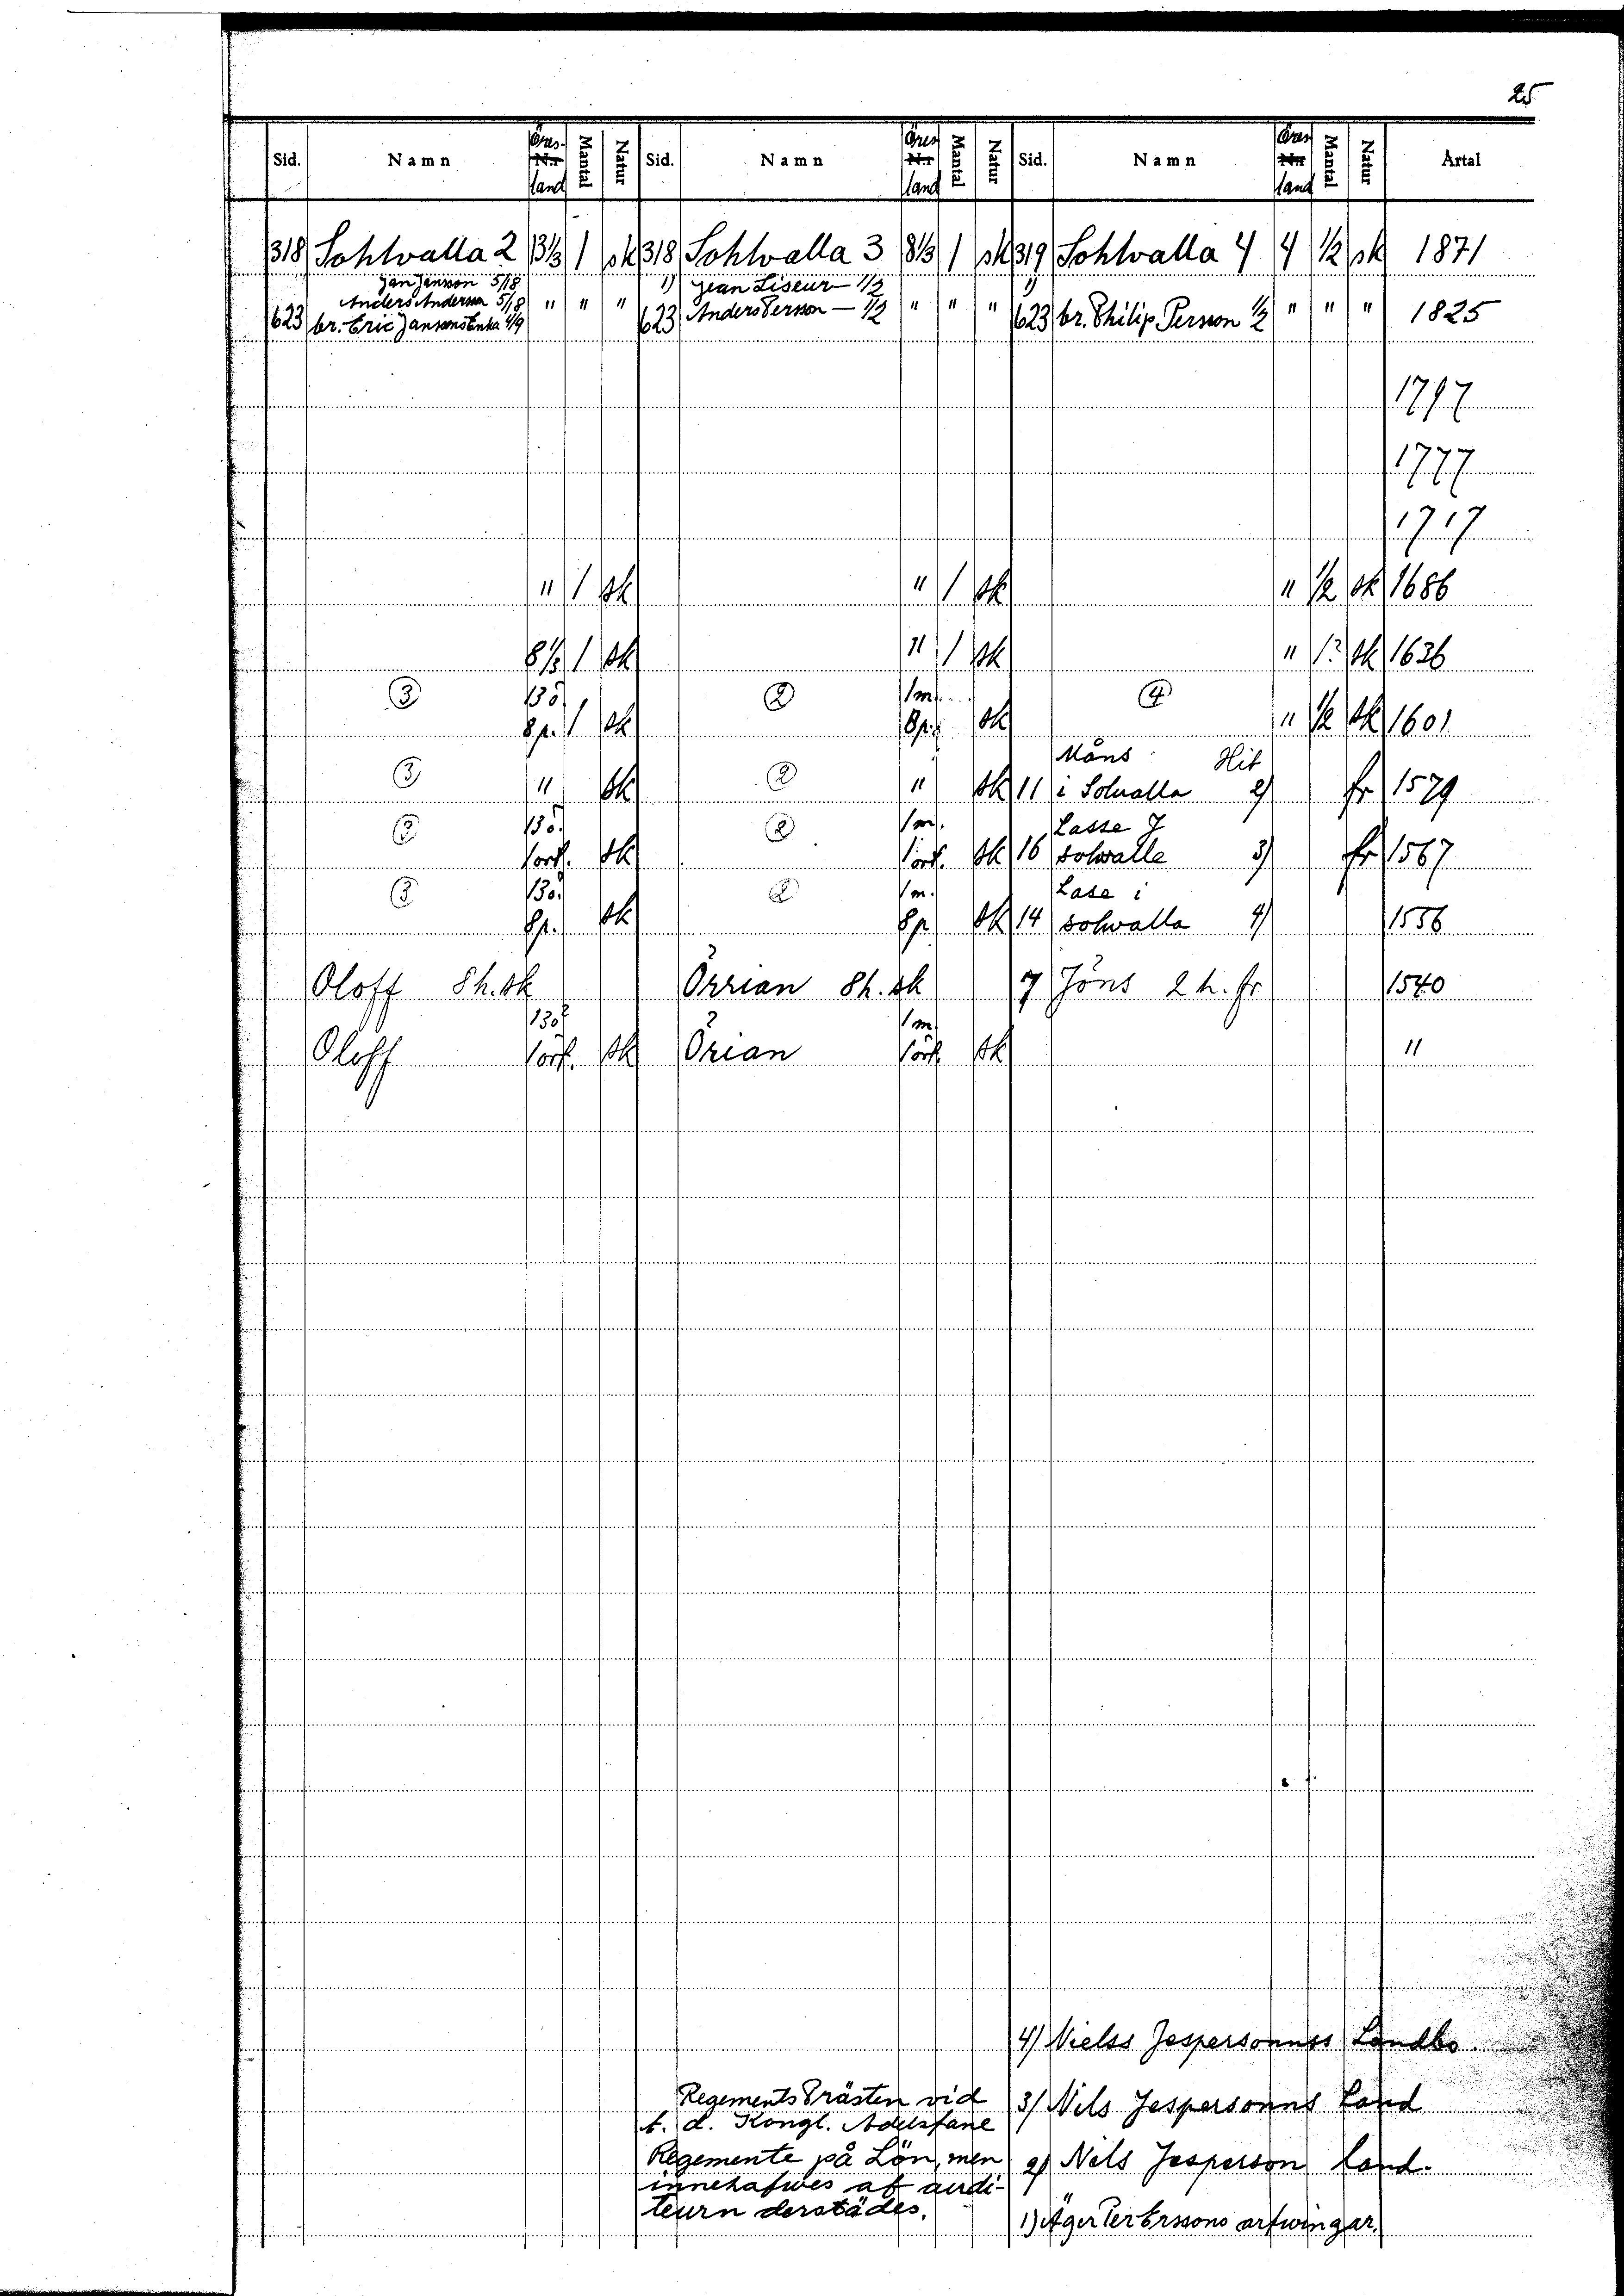 25
Sid. Namn Öres-land Nr Mantal Natur Sid. Namn Öres-land Nr Mantal Natur Sid. Namn Öres-land Nr Mantal Natur Årtal
318 Sohlvalla 2 13⅓ 1 sk 318 Sohlvalla 3 8⅓ 1 sk 319 Sohlvalla 4 4 ½ sk 1871
Jan Jansson 5/18 1) Jean Liseur - 1/2 1)
Anders Andersson 5/18 " " " Anders Persson - 1/2 " " " " " "
623 br. Eric Janssons Enka 4/9 623 623 br. Philip Persson 1/2 1825
1797
1777
1717
" 1 sk " 1 sk " ½ sk 1686
8⅓ 1 sk " 1 sk " 1? sk 1636
③ 13ö ② 1m. ④
8p. 1 sk 8p. sk " ½ sk 1601
Måns Hit
③ " sk ② " sk 11 i Solualla 2) fr 1579
③ 13ö. ② 1m. Lasse J
1ört. sk 1ört. sk 16 solwalle 3) fr 1567
③ 13ö. ② 1m. Lase i
8p. sk 8p sk 14 solwalla 4) 1556
Oloff 8h. sk Örrian 8h. sk 7 Jöns 2 h. fr 1540
13ö? 1m.
Oloff 1ört. sk Örian 1ört. sk "
4) Nielss Jespersonnss Landbo.
Regements Prästen vid 3) Nils Jespersonns Land
t. d. Kongl. Adelsfane
Regemente på Lön, men 2) Nels Jesperson land.
innehafwes af audi-
teurn derstädes. 1) Äger Per Erssons arfwingar.